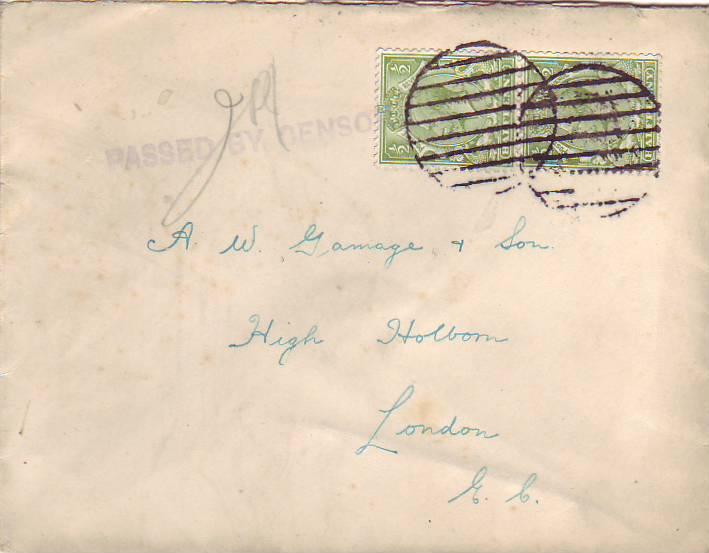 PASSED BY CENSO
A. W. Gamage & Son.
High Holborn
London
E. C.